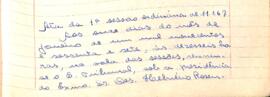 Ata da 1ª sessão ordinária de 11.1.67
Aos onze dias do mês de
janeiro de um mil novecentos
e sessenta e sete, às dezesseis ho-
ras, na sala das sessões, reuniu-
se o E. Tribunal, sob a presidência
do Exmo. Sr. Des.